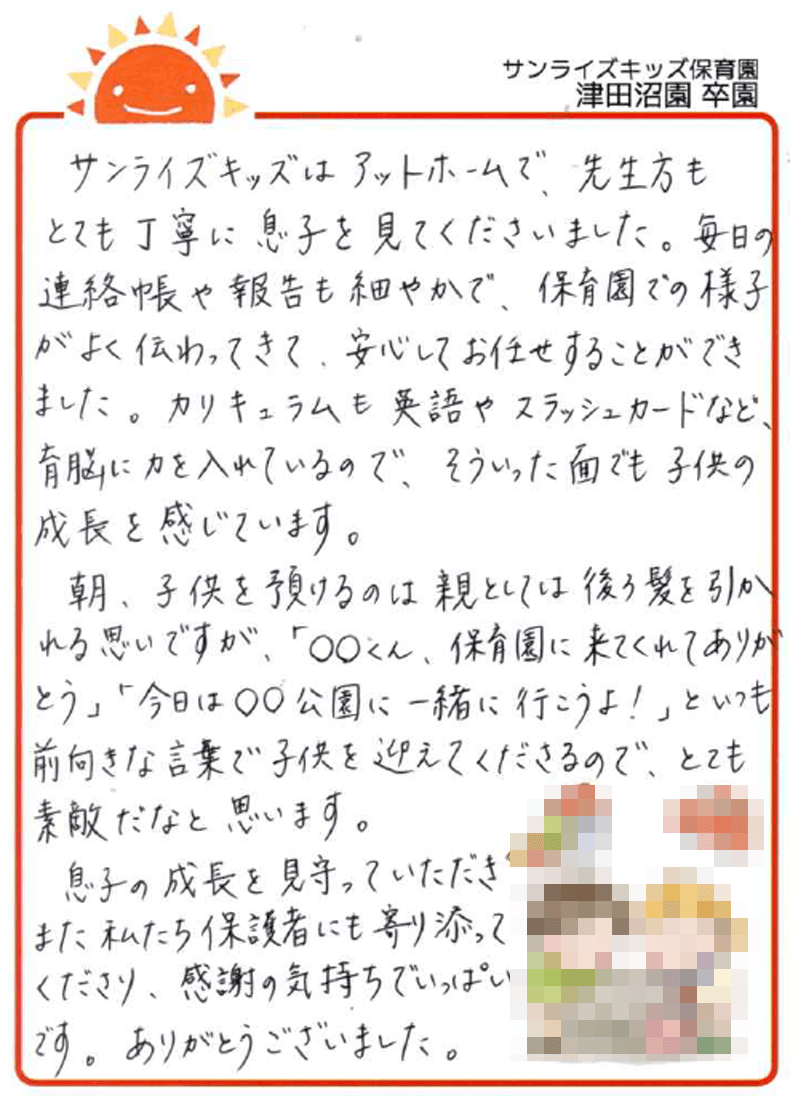 サンライズキッズ保育園
津田沼園 卒園
サンライズキッズはアットホームで、先生方も
とても丁寧に息子を見てくださいました。毎日の
連絡帳や報告も細やかで、保育園での様子
がよく伝わってきて、安心してお任せすることができ
ました。カリキュラムも英語やスラッシュカードなど、
育脳に力を入れているので、そういった面でも子供の
成長を感じています。
朝、子供を預けるのは親としては後ろ髪を引か
れる思いですが、「〇〇くん、保育園に来てくれてありが
とう」「今日は〇〇公園に一緒に行こうよ!」といつも
前向きな言葉で子供を迎えてくださるので、とても
素敵だなと思います。
息子の成長を見守っていただき
また私たち保護者にも寄り添って
くださり、感謝の気持ちでいっぱい
です。ありがとうございました。